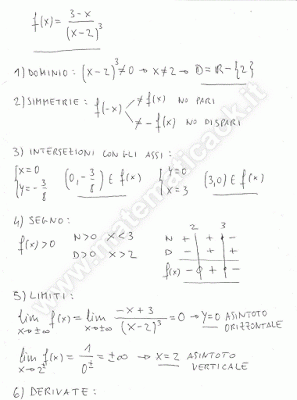 f(x) = 3-x / (x-2)³
1) DOMINIO: (x-2)³ ≠ 0 → x ≠ 2 → D = R - {2}
2) SIMMETRIE: f(-x) ≠ f(x) NO PARI
≠ -f(x) NO DISPARI
3) INTERSEZIONI CON GLI ASSI:
{x=0 {y=0
{y=-3/8 (0,-3/8) ∈ f(x) {x=3 (3,0) ∈ f(x)
4) SEGNO:
2 3
f(x)>0 N>0 x<3 N + + -
D>0 x>2 D - + +
f(x) - + -
5) LIMITI:
lim x→±∞ f(x) = lim x→±∞ -x+3 / (x-2)³ = 0 → y=0 ASINTOTO ORIZZONTALE
lim x→2± f(x) = 1/0± = ±∞ → x=2 ASINTOTO VERTICALE
6) DERIVATE:
www.matematicaok.it